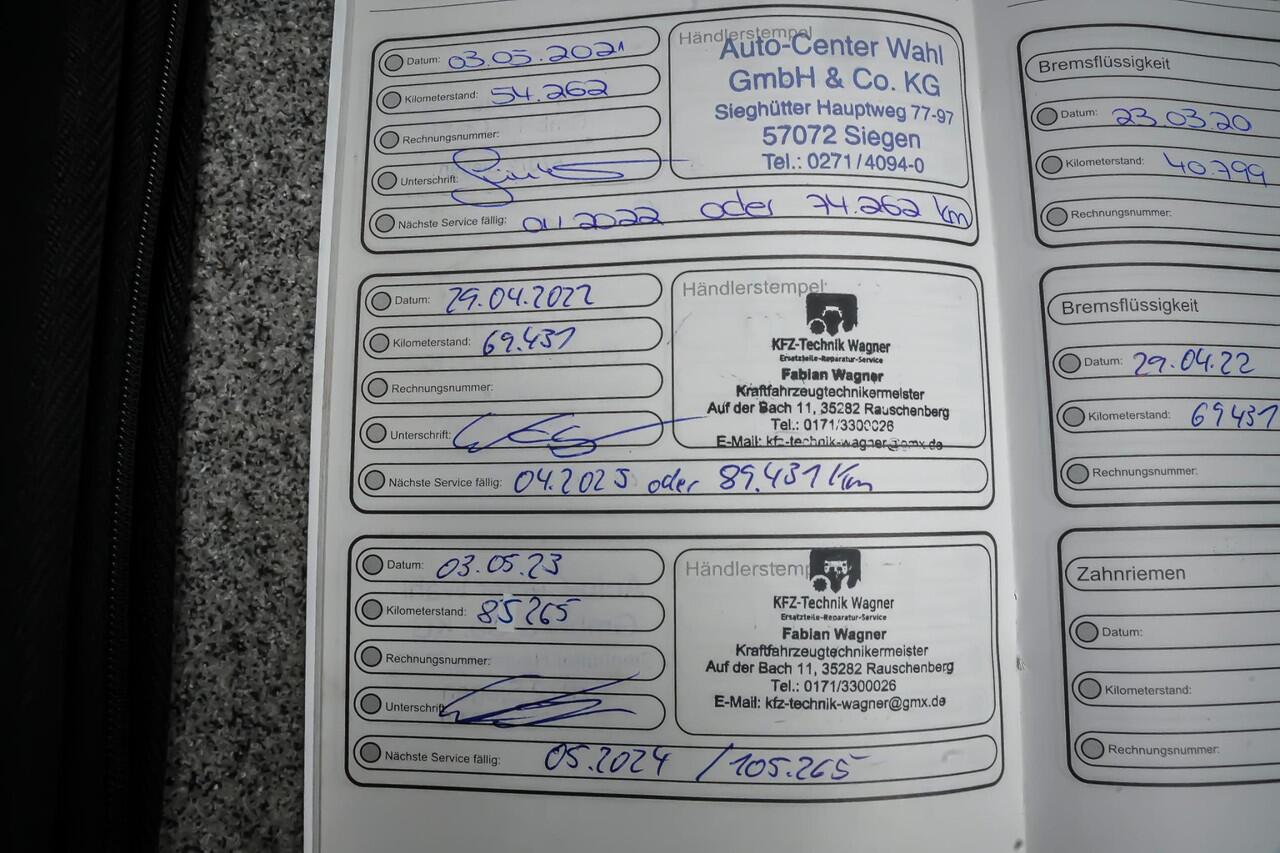 Datum: 03.05.2021
Kilometerstand: 54.262
Rechnungsnummer:
Unterschrift:
Händlerstempel
Auto-Center Wahl
GmbH & Co. KG
Sieghütter Hauptweg 77-97
57072 Siegen
Tel.: 0271/4094-0
Nächste Service fällig: oder 74.262 km
Datum: 29.04.2022
Kilometerstand: 69.431
Rechnungsnummer:
Unterschrift:
Händlerstempel:
KFZ-Technik Wagner
Ersatzteile-Reparatur-Service
Fabian Wagner
Kraftfahrzeugtechnikermeister
Auf der Bach 11, 35282 Rauschenberg
Tel.: 0171/3300026
E-Mail: kfz-technik-wagner@gmx.de
Nächste Service fällig: 04.2023 oder 89.431 Km
Datum: 03.05.23
Kilometerstand: 85265
Rechnungsnummer:
Unterschrift
Händlerstemp
KFZ-Technik Wagner
Ersatzteile-Reparatur-Service
Fabian Wagner
Kraftfahrzeugtechnikermeister
Auf der Bach 11, 35282 Rauschenberg
Tel.: 0171/3300026
E-Mail: kfz-technik-wagner@gmx.de
Nächste Service fällig: 05.2024 / 105.265
Bremsflüssigkeit
Datum: 23.03.20
Kilometerstand: 40.799
Rechnungsnummer:
Bremsflüssigkeit
Datum: 29.04.22
Kilometerstand: 69431
Rechnungsnummer:
Zahnriemen
Datum:
Kilometerstand:
Rechnungsnummer: